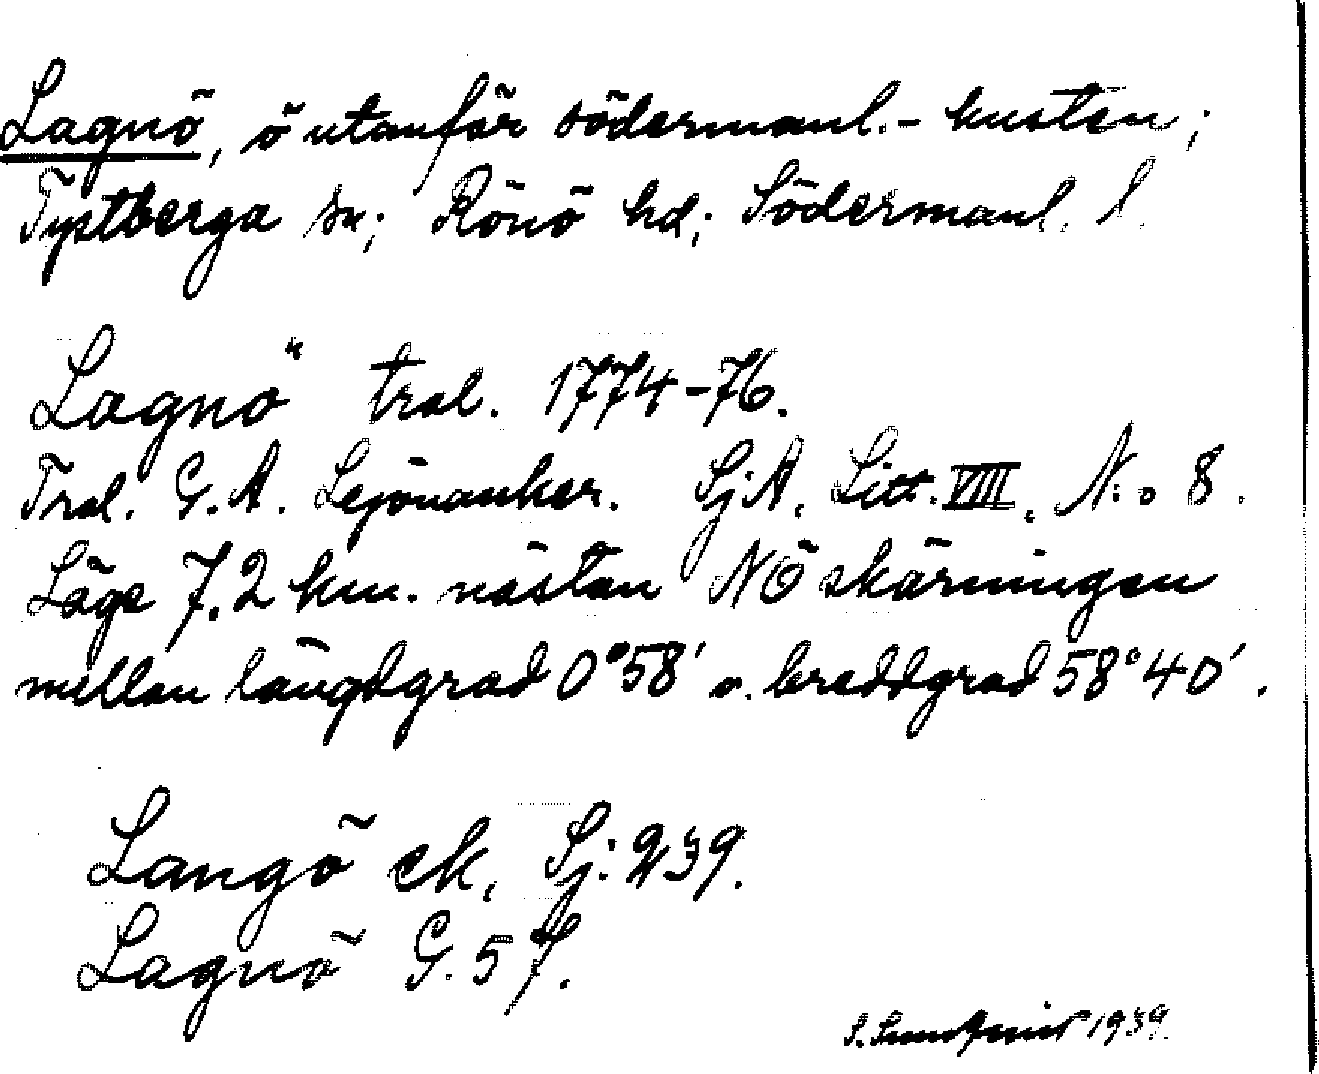 Lagnö, ö utanför södermanl.-kusten;
Tystberga sn; Rönö hd; Södermanl. l.
Lagnö tral. 1774-76.
Tral. G.A. Lejonanker. SjA. Litt. VIII. N:o 8.
Läge 7.2 km. nästan NÖ skärningen
mellan längdgrad 0°58' o. breddgrad 58°40'.
Langö ek. Sj: 239.
Lagnö G. 57.
S. 1939.